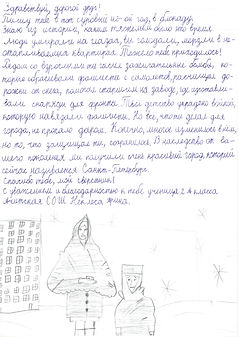 Здравствуй, дорогой друг!
Пишу тебе в тот суровый год, в блокаду.
Знаю из истории, какое тяжёлое было это время.
Люди умирали на ходу, вы голодали, мёрзли в не-
отапливаемых квартирах. Тяжело тебе приходилось!
Дедом со взрослыми ты гасил зажигательные бомбы, ко-
торые сбрасывали фашисты с самолётов, расчищал
дорожки от снега, помогал старшим на заводе, изготавли-
вали снаряды для фронта. Твоё детство украдено войной,
которую навязали фашисты. Но всё, что ты делал для
города, не прошло даром. Конечно, многое изменилось в нём,
но то, что защищал ты, сохранилось. В наследство от ва-
шего поколения мы получили очень красивый город, который
сейчас называется Санкт-Петербург.
Спасибо тебе, мой сверстник!
С уважением и благодарностью к тебе ученица 2 А класса
СОШ Ирина.